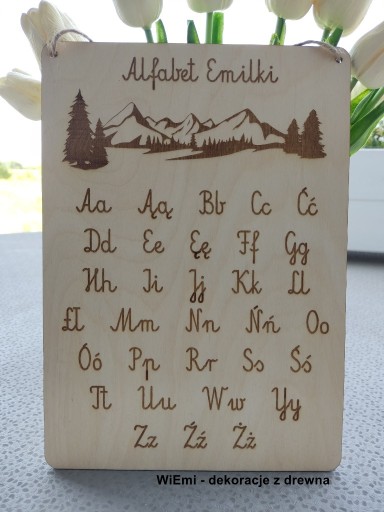 Alfabet Emilki
Aa Ąą Bb Cc Ćć
Dd Ee Ęę Ff Gg
Hh Ii Jj Kk Ll
Łł Mm Nn Ńń Oo
Óó Pp Rr Ss Śś
Tt Uu Ww Yy
Zz Źź Żż
WiEmi - dekoracje z drewna